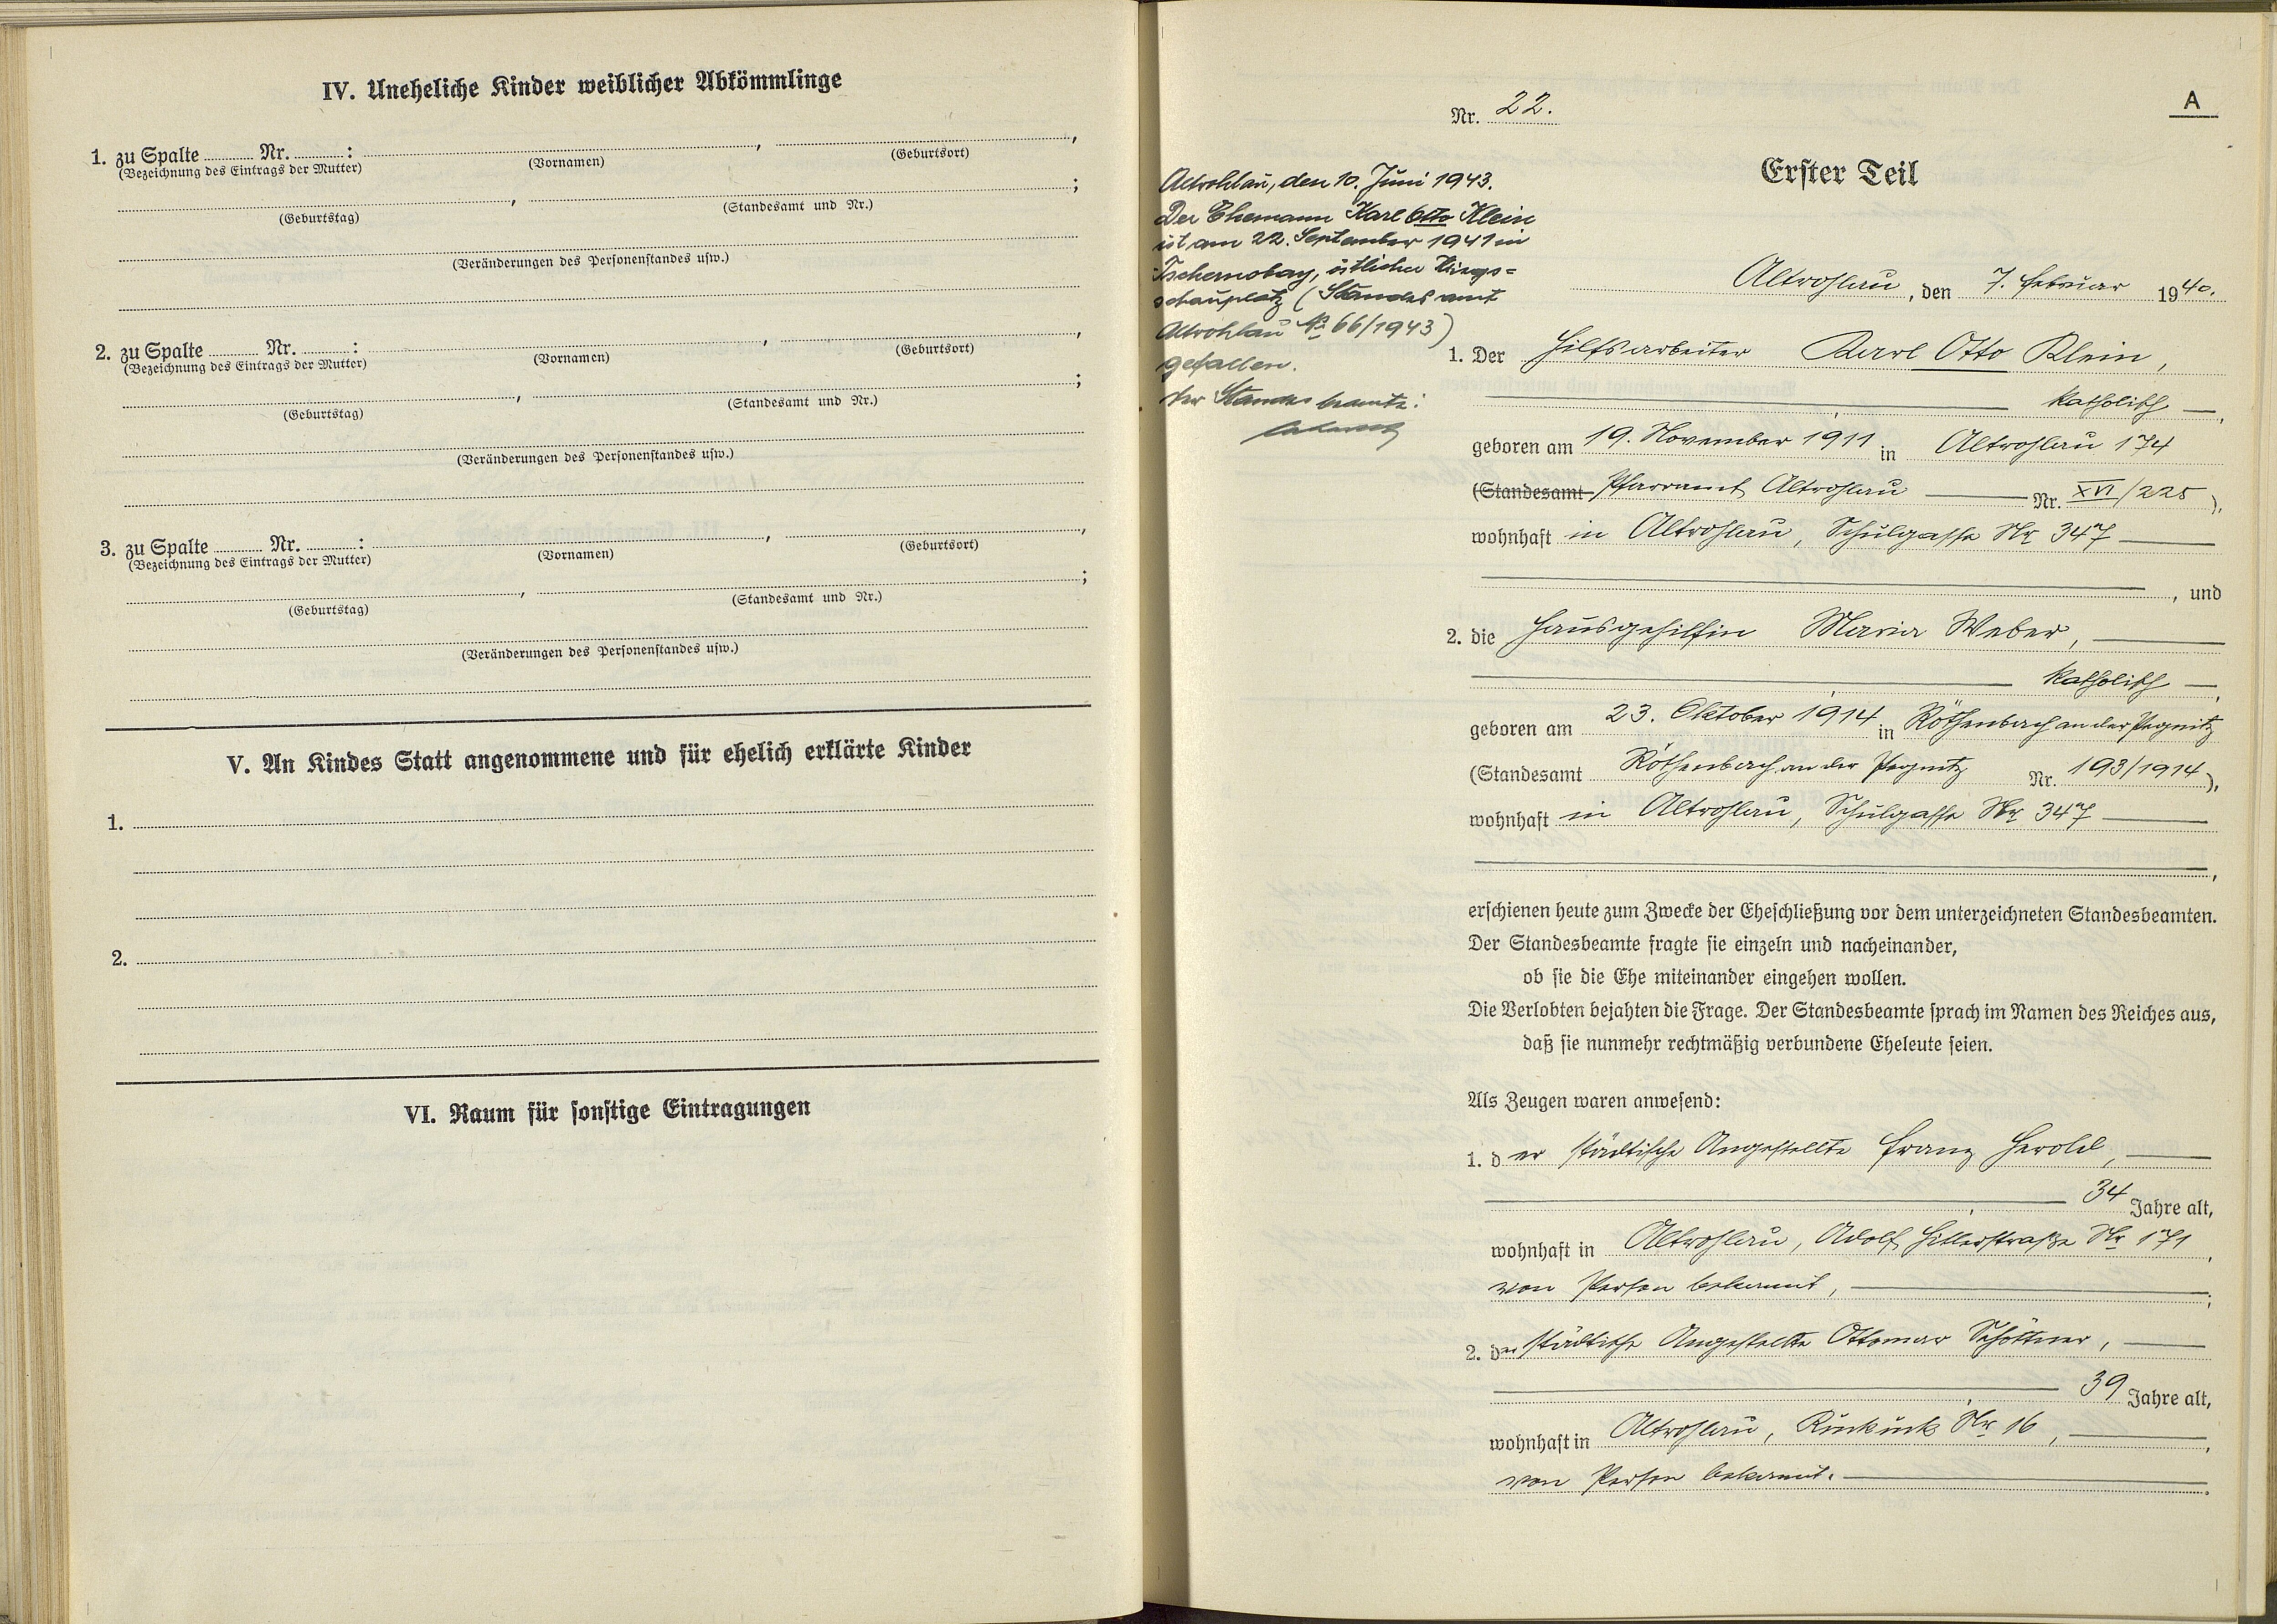 IV. Uneheliche Kinder weiblicher Abkömmlinge
1. zu Spalte ........ Nr. ........ : ........, ........,
(Bezeichnung des Eintrags der Mutter) (Vornamen) (Geburtsort)
........, ........;
(Geburtstag) (Standesamt und Nr.)
(Veränderungen des Personenstandes usw.)
2. zu Spalte ........ Nr. ........ : ........, ........,
(Bezeichnung des Eintrags der Mutter) (Vornamen) (Geburtsort)
........, ........;
(Geburtstag) (Standesamt und Nr.)
(Veränderungen des Personenstandes usw.)
3. zu Spalte ........ Nr. ........ : ........, ........,
(Bezeichnung des Eintrags der Mutter) (Vornamen) (Geburtsort)
........, ........;
(Geburtstag) (Standesamt und Nr.)
(Veränderungen des Personenstandes usw.)
V. An Kindes Statt angenommene und für ehelich erklärte Kinder
1.
2.
VI. Raum für sonstige Eintragungen
A
Nr. 22.
Erster Teil
Altrohlau, den 10. Juni 1943.
Der Ehemann Karl Otto Klein
ist am 22. September 1941 in
Tschernobay, östlicher Kriegs=
schauplatz (Standesamt
Altrohlau No 66/1943)
gefallen.
Der Standesbeamte:
Altrohlau, den 7. Februar 1940.
1. Der Hilfsarbeiter Karl Otto Klein,
katholisch
geboren am 19. November 1911 in Altrohlau 174
(Standesamt Pfarramt Altrohlau Nr. XVI/225),
wohnhaft in Altrohlau, Schulgasse Nr 347
, und
2. die Hausgehilfin Maria Weber,
katholisch
geboren am 23. Oktober 1914 in Röthenbach an der Pegnitz
(Standesamt Röthenbach an der Pegnitz Nr. 193/1914),
wohnhaft in Altrohlau, Schulgasse Nr 347
erschienen heute zum Zwecke der Eheschließung vor dem unterzeichneten Standesbeamten.
Der Standesbeamte fragte sie einzeln und nacheinander,
ob sie die Ehe miteinander eingehen wollen.
Die Verlobten bejahten die Frage. Der Standesbeamte sprach im Namen des Reiches aus,
daß sie nunmehr rechtmäßig verbundene Eheleute seien.
Als Zeugen waren anwesend:
1. der städtische Angestellte Franz Herold,
34 Jahre alt,
wohnhaft in Altrohlau, Adolf Hitlerstraße Nr 171,
von Person bekannt,
2. der städtische Angestellte Ottomar Schöttner,
39 Jahre alt,
wohnhaft in Altrohlau, Kuckuck Nr 16,
von Person bekannt.